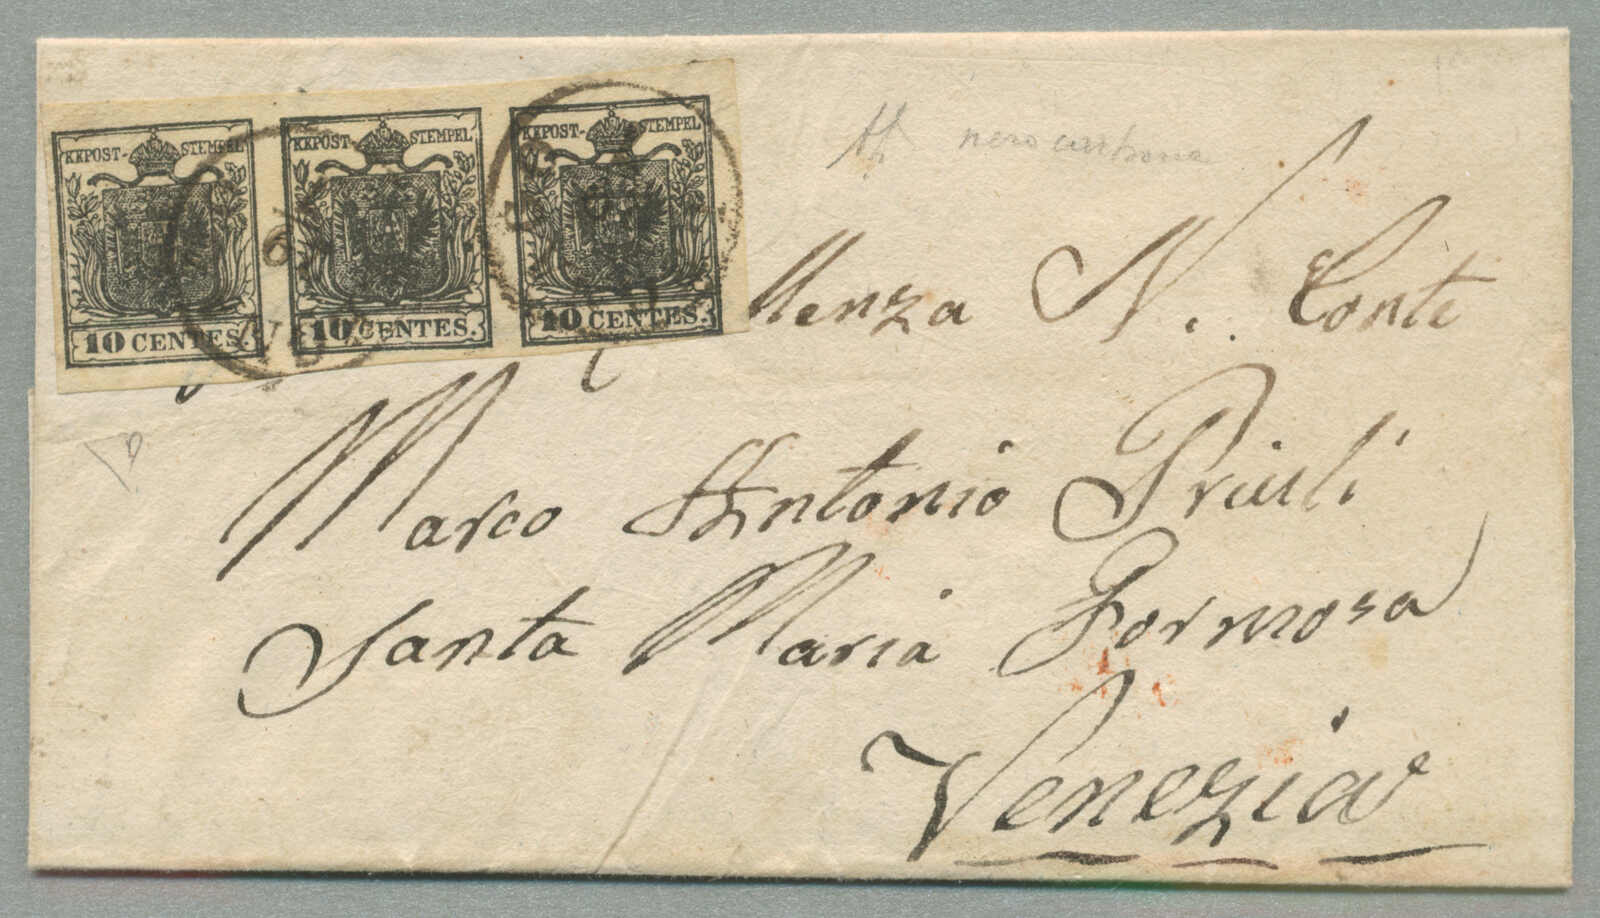 KKPOST-STEMPEL KKPOST-STEMPEL KKPOST-STEMPEL
10 CENTES. 10 CENTES. 10 CENTES.
nero carbone
llenza N. Conte
Marco Antonio Priuli
Santa Maria Formosa
Venezia